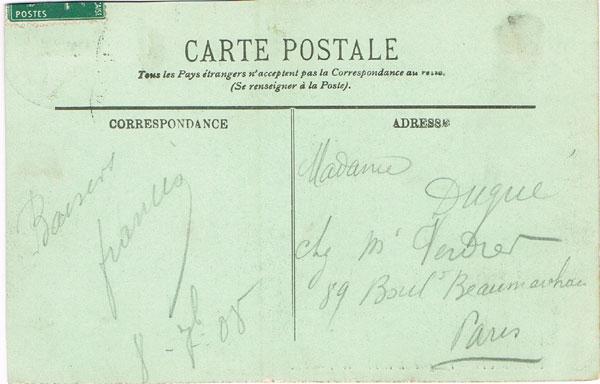 POSTES
CARTE POSTALE
Tous les Pays étrangers n'acceptent pas la Correspondance au verso.
(Se renseigner à la Poste).
CORRESPONDANCE
ADRESSE
Baisers
8 - 7b 05
Madame
Duqué
chez Mr
89 Boult Beaumarchais
Paris